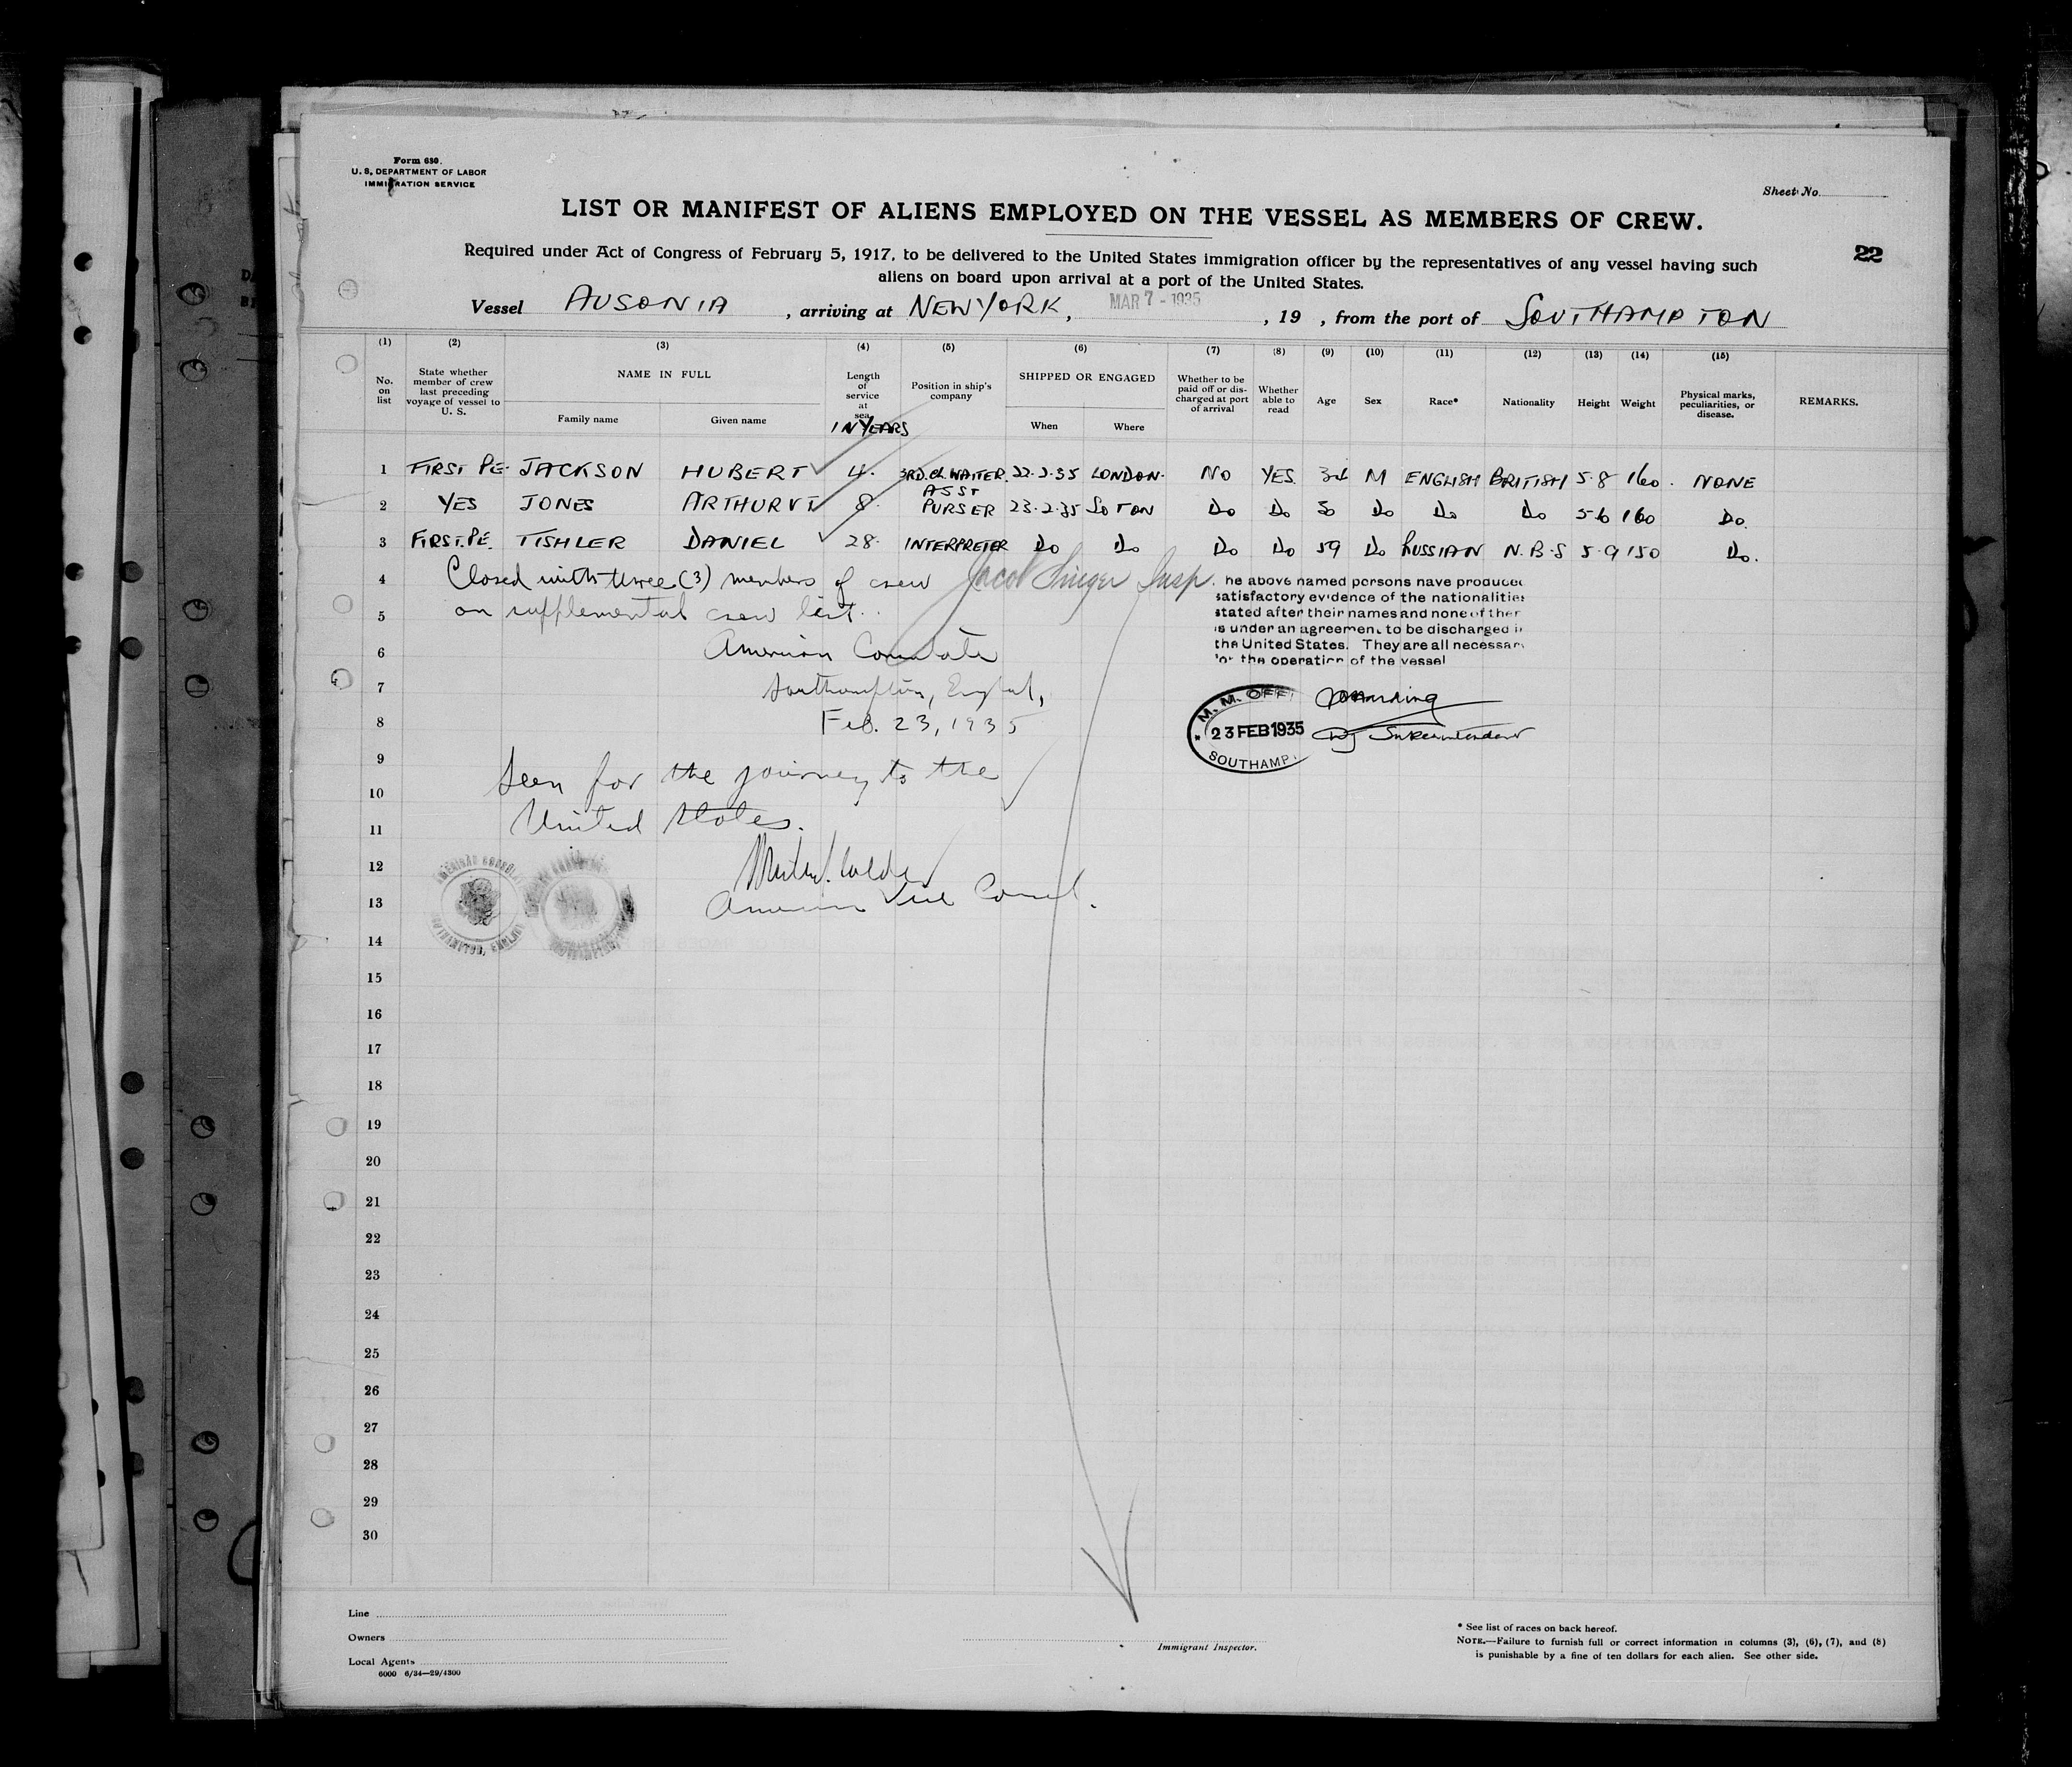 Form 630.
U. S. DEPARTMENT OF LABOR
IMMIGRATION SERVICE
Sheet No.
LIST OR MANIFEST OF ALIENS EMPLOYED ON THE VESSEL AS MEMBERS OF CREW.
22
Required under Act of Congress of February 5, 1917, to be delivered to the United States immigration officer by the representatives of any vessel having such
aliens on board upon arrival at a port of the United States.
Vessel AUSONIA , arriving at NEW YORK, MAR 7 - 1935 , 19 , from the port of SOUTHAMPTON
(1) (2) (3) (4) (5) (6) (7) (8) (9) (10) (11) (12) (13) (14) (15)
No. on list State whether member of crew last preceding voyage of vessel to U. S. NAME IN FULL Family name Given name Length of service at sea IN YEARS Position in ship's company SHIPPED OR ENGAGED When Where Whether to be paid off or discharged at port of arrival Whether able to read Age Sex Race* Nationality Height Weight Physical marks, peculiarities, or disease. REMARKS.
1 FIRST PE. JACKSON HUBERT 4. 3RD. CL. WAITER. 22.2.35 LONDON. NO YES. 34 M ENGLISH BRITISH 5.8 160. NONE
2 YES JONES ARTHUR 8. ASST PURSER 23.2.35 SOTON Do Do 30 Do Do Do 5.6 160 Do.
3 FIRST. PE. TISHLER DANIEL 28. INTERPRETER Do Do Do Do 59 Do RUSSIAN N.B.S 5.9 150 Do.
4 Closed with three (3) members of crew Jacob Singer Insp.
5 on supplemental crew list.
he above named persons have produced
satisfactory evidence of the nationalities
stated after their names and none of ther
is under an agreement to be discharged i
the United States. They are all necessar
for the operation of the vessel
6 American Consulate
7 Southampton, England,
8 Feb. 23, 1935
M. M. OFFI
23 FEB 1935
SOUTHAMP
Dy Superintendent
9 Seen for the journey to the
10
11 United States.
12
13 American Vice Consul.
AMERICAN CONSULATE
SOUTHAMPTON, ENGLAND
14
15
16
17
18
19
20
21
22
23
24
25
26
27
28
29
30
Line
Owners
Local Agents
6000 6/34—29/4300
Immigrant Inspector.
* See list of races on back hereof.
NOTE.—Failure to furnish full or correct information in columns (3), (6), (7), and (8)
is punishable by a fine of ten dollars for each alien. See other side.